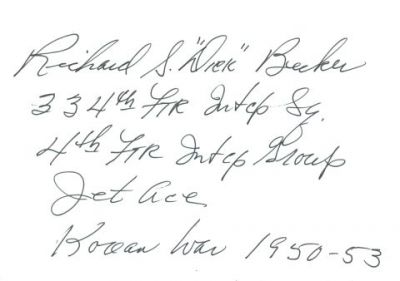 Richard S. "Dick" Becker
334th Ftr Intcp Sq.
4th Ftr Intcp Group
Jet Ace
Korean War 1950-53